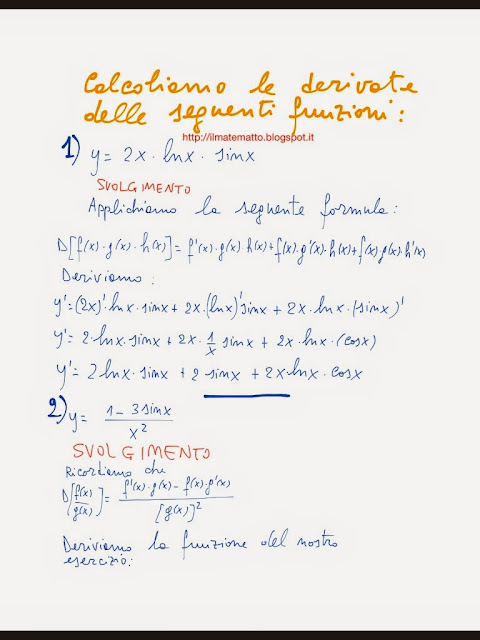 Calcoliamo le derivate
delle seguenti funzioni:
http://ilmatematto.blogspot.it
1) y = 2x · lnx · sinx
SVOLGIMENTO
Applichiamo la seguente formula:
D[f(x)·g(x)·h(x)] = f'(x)·g(x)·h(x)+f(x)·g'(x)·h(x)+f(x)·g(x)·h'(x)
Deriviamo:
y' = (2x)'·lnx·sinx + 2x·(lnx)'sinx + 2x·lnx·(sinx)'
y' = 2·lnx·sinx + 2x·1/x sinx + 2x·lnx·(cosx)
y' = 2lnx·sinx + 2 sinx + 2x·lnx·cosx
2) y = (1-3sinx)/x²
SVOLGIMENTO
Ricordiamo che
D[f(x)/g(x)] = (f'(x)·g(x) - f(x)·g'(x))/[g(x)]²
Deriviamo la funzione del nostro
esercizio: